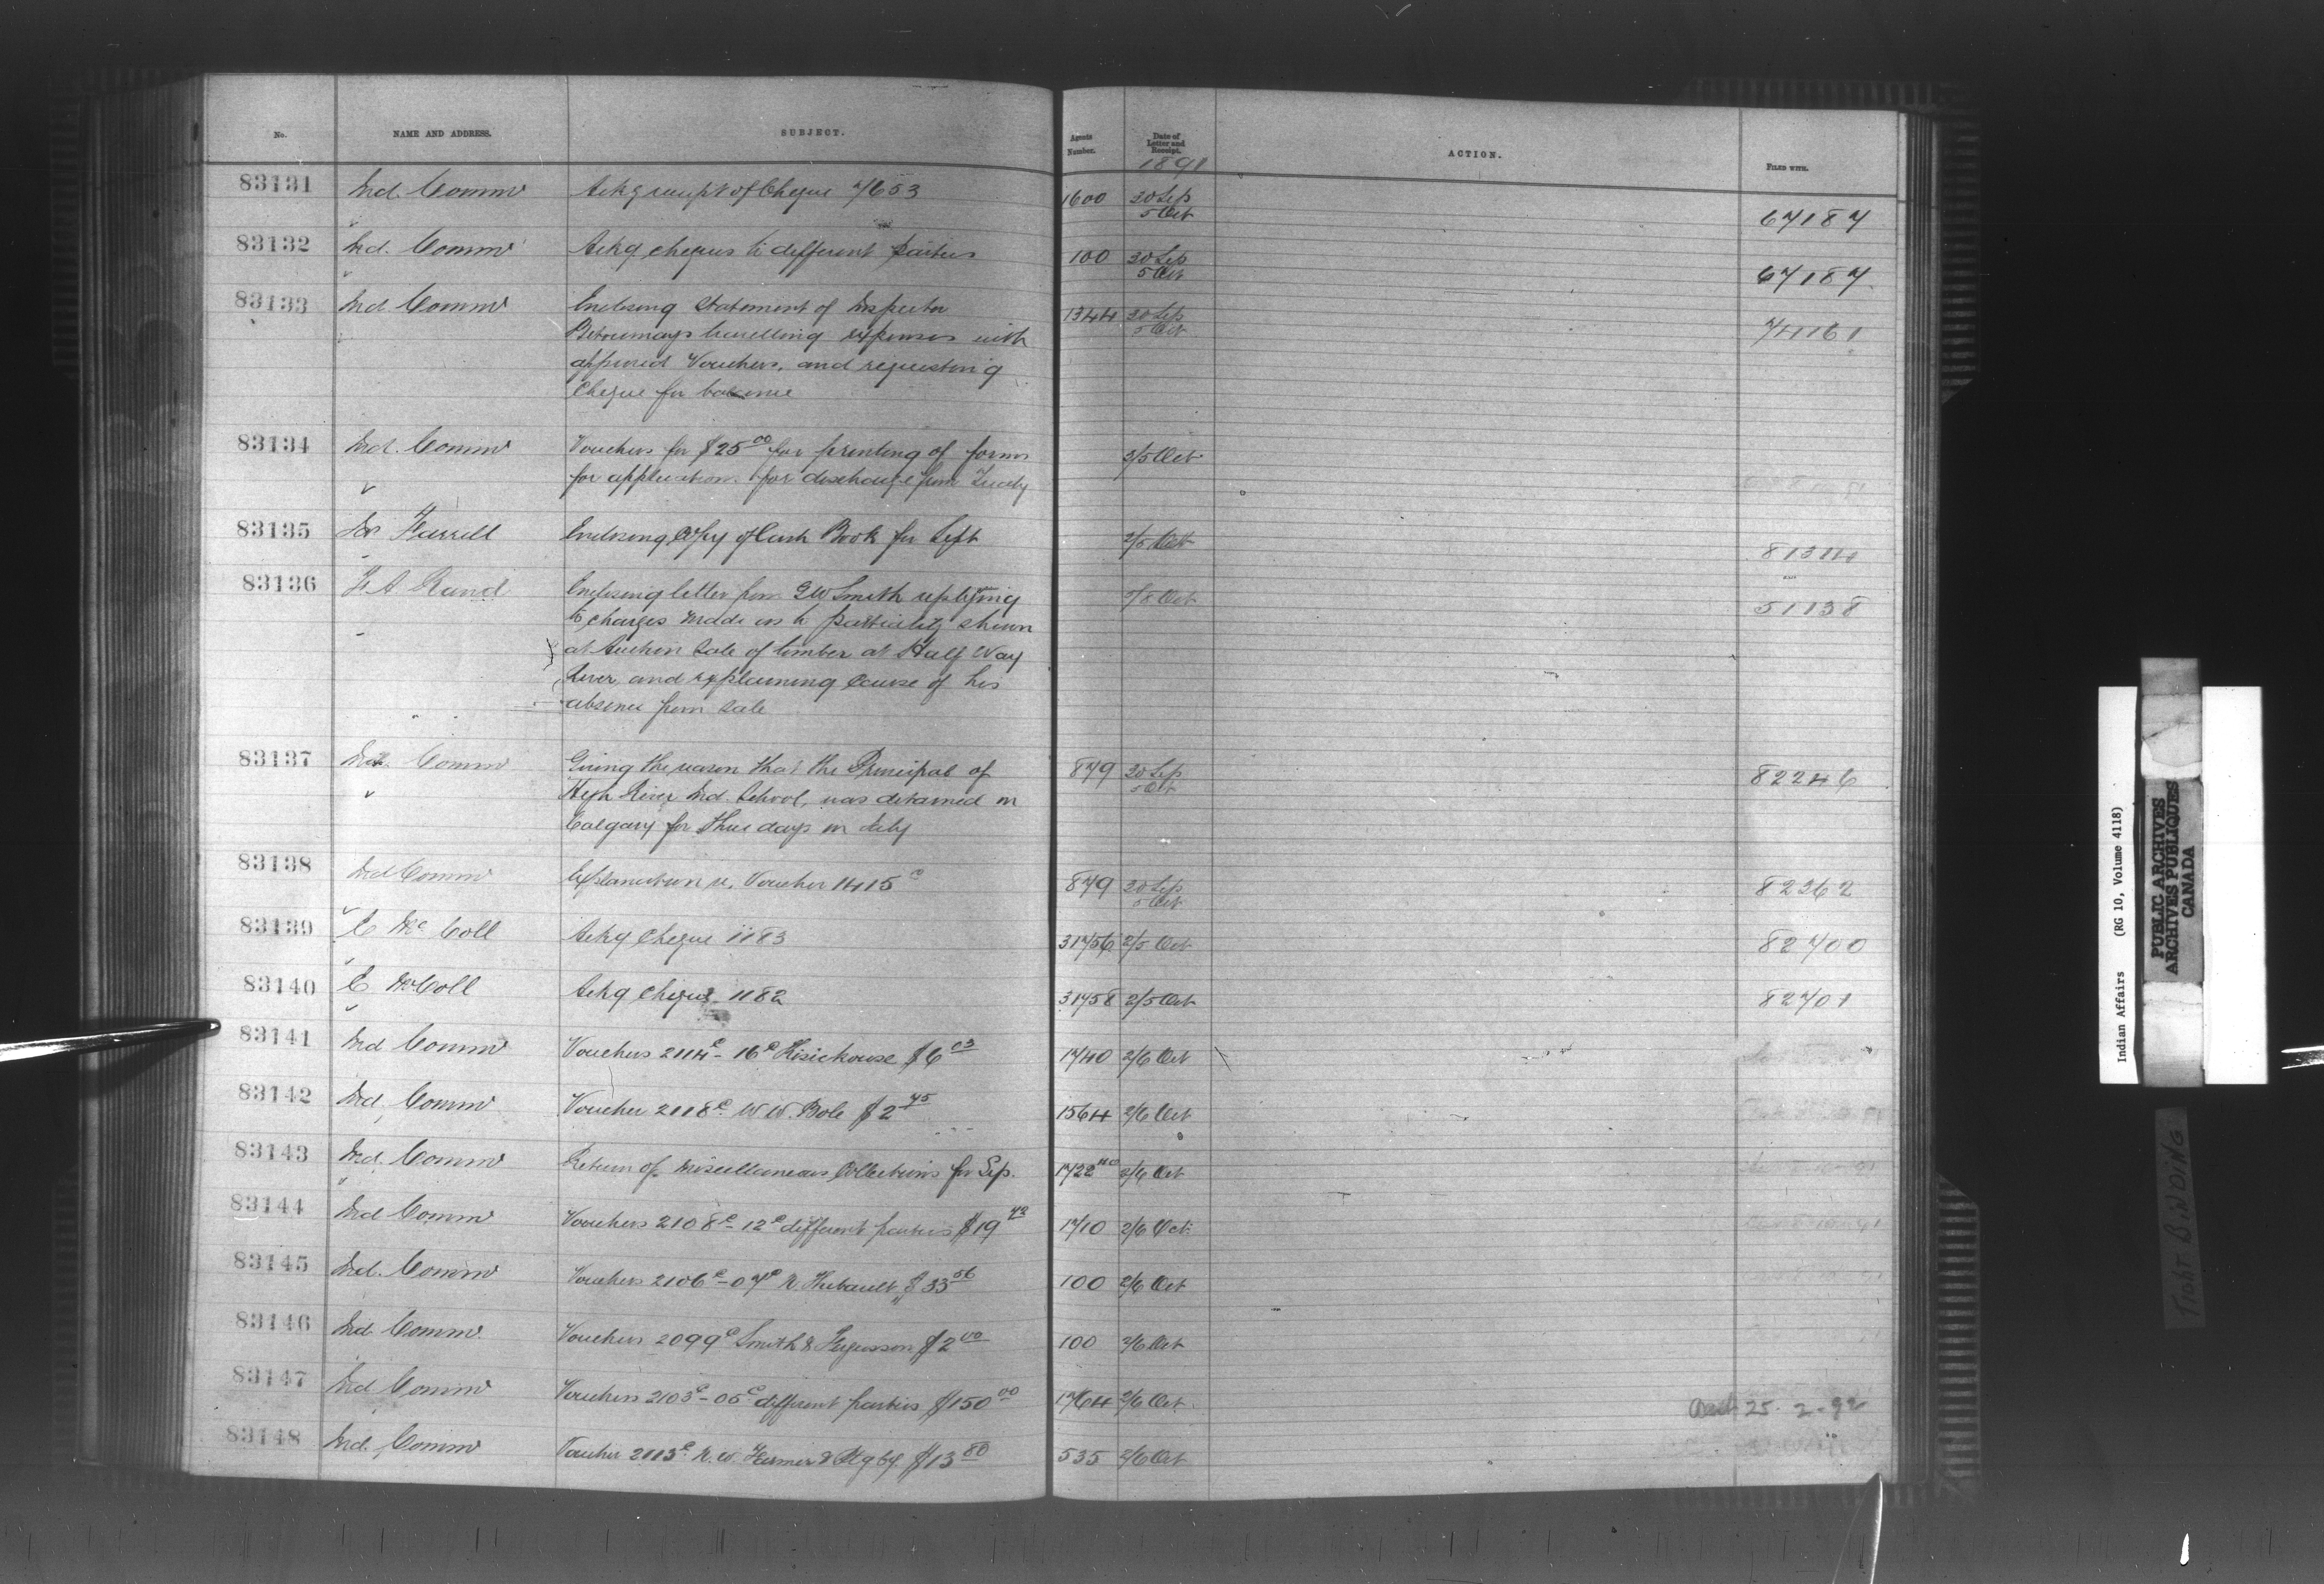 No. NAME AND ADDRESS. SUBJECT. Agents Number. Date of Letter and Receipt. ACTION. FILED WITH.
1891
83131 Ind. Commr Ackg receipt of Cheque 7653 1600 30 Sep 67187
5 Oct
83132 Ind. Commr Ackg cheques to different parties 100 30 Sep 67187
5 Oct
83133 Ind Commr Enclosing Statement of Inspector 1344 30 Sep 74161
travelling expenses with 5 Oct
approved Vouchers, and requesting
Cheque for balance
83134 Ind. Commr Vouchers for $25 00 for printing of forms 3/5 Oct
for applications for discharge from Treaty
83135 Dr Farrell Enclosing Copy of Cash Book for Sept 2/5 Oct 81344
83136 F A Rand Enclosing letter from G W Smith replying 2/8 Oct 51138
to charges made as to partiality shewn
at Auction Sale of timber at Half Way
River and explaining Cause of his
absence from Sale
83137 Ind. Commr Giving the reason that the Principal of 879 30 Sep 82246
High River Ind. School, was detained in 5 Oct
Calgary for three days in July
83138 Ind Commr Explanation re. Voucher 1415 c 879 30 Sep 82262
5 Oct
83139 E Mc Coll Ackg Cheque 1183 31756 2/5 Oct 82700
83140 E McColl Ackg Cheque 1182 31758 2/5 Oct 82701
83141 Ind Commr Vouchers 2114 c - 16 c $6 03 1740 2/6 Oct
83142 Ind. Commr Voucher 2118 c W W. Bole $2 45 1564 2/6 Oct
83143 Ind. Commr Return of Miscellaneous Collections for Sep. 1722 2/6 Oct
83144 Ind Commr Vouchers 2108 c - 12 c different parties $19 43 1710 2/6 Oct
83145 Ind. Commr Vouchers 2106 c - 07 c N Thibault $33 56 100 2/6 Oct
83146 Ind. Commr. Vouchers 2099 c Smith & Fergusson $2 00 100 2/6 Oct
83147 Ind Commr Vouchers 2103 c - 05 c different parties $150 00 1764 2/6 Oct. 25-2-92
83148 Ind. Commr Voucher 2113 c N. W. Farmer $13 80 535 2/6 Oct
Indian Affairs (RG 10, Volume 4118)
PUBLIC ARCHIVES
ARCHIVES PUBLIQUES
CANADA
TIGHT BINDING